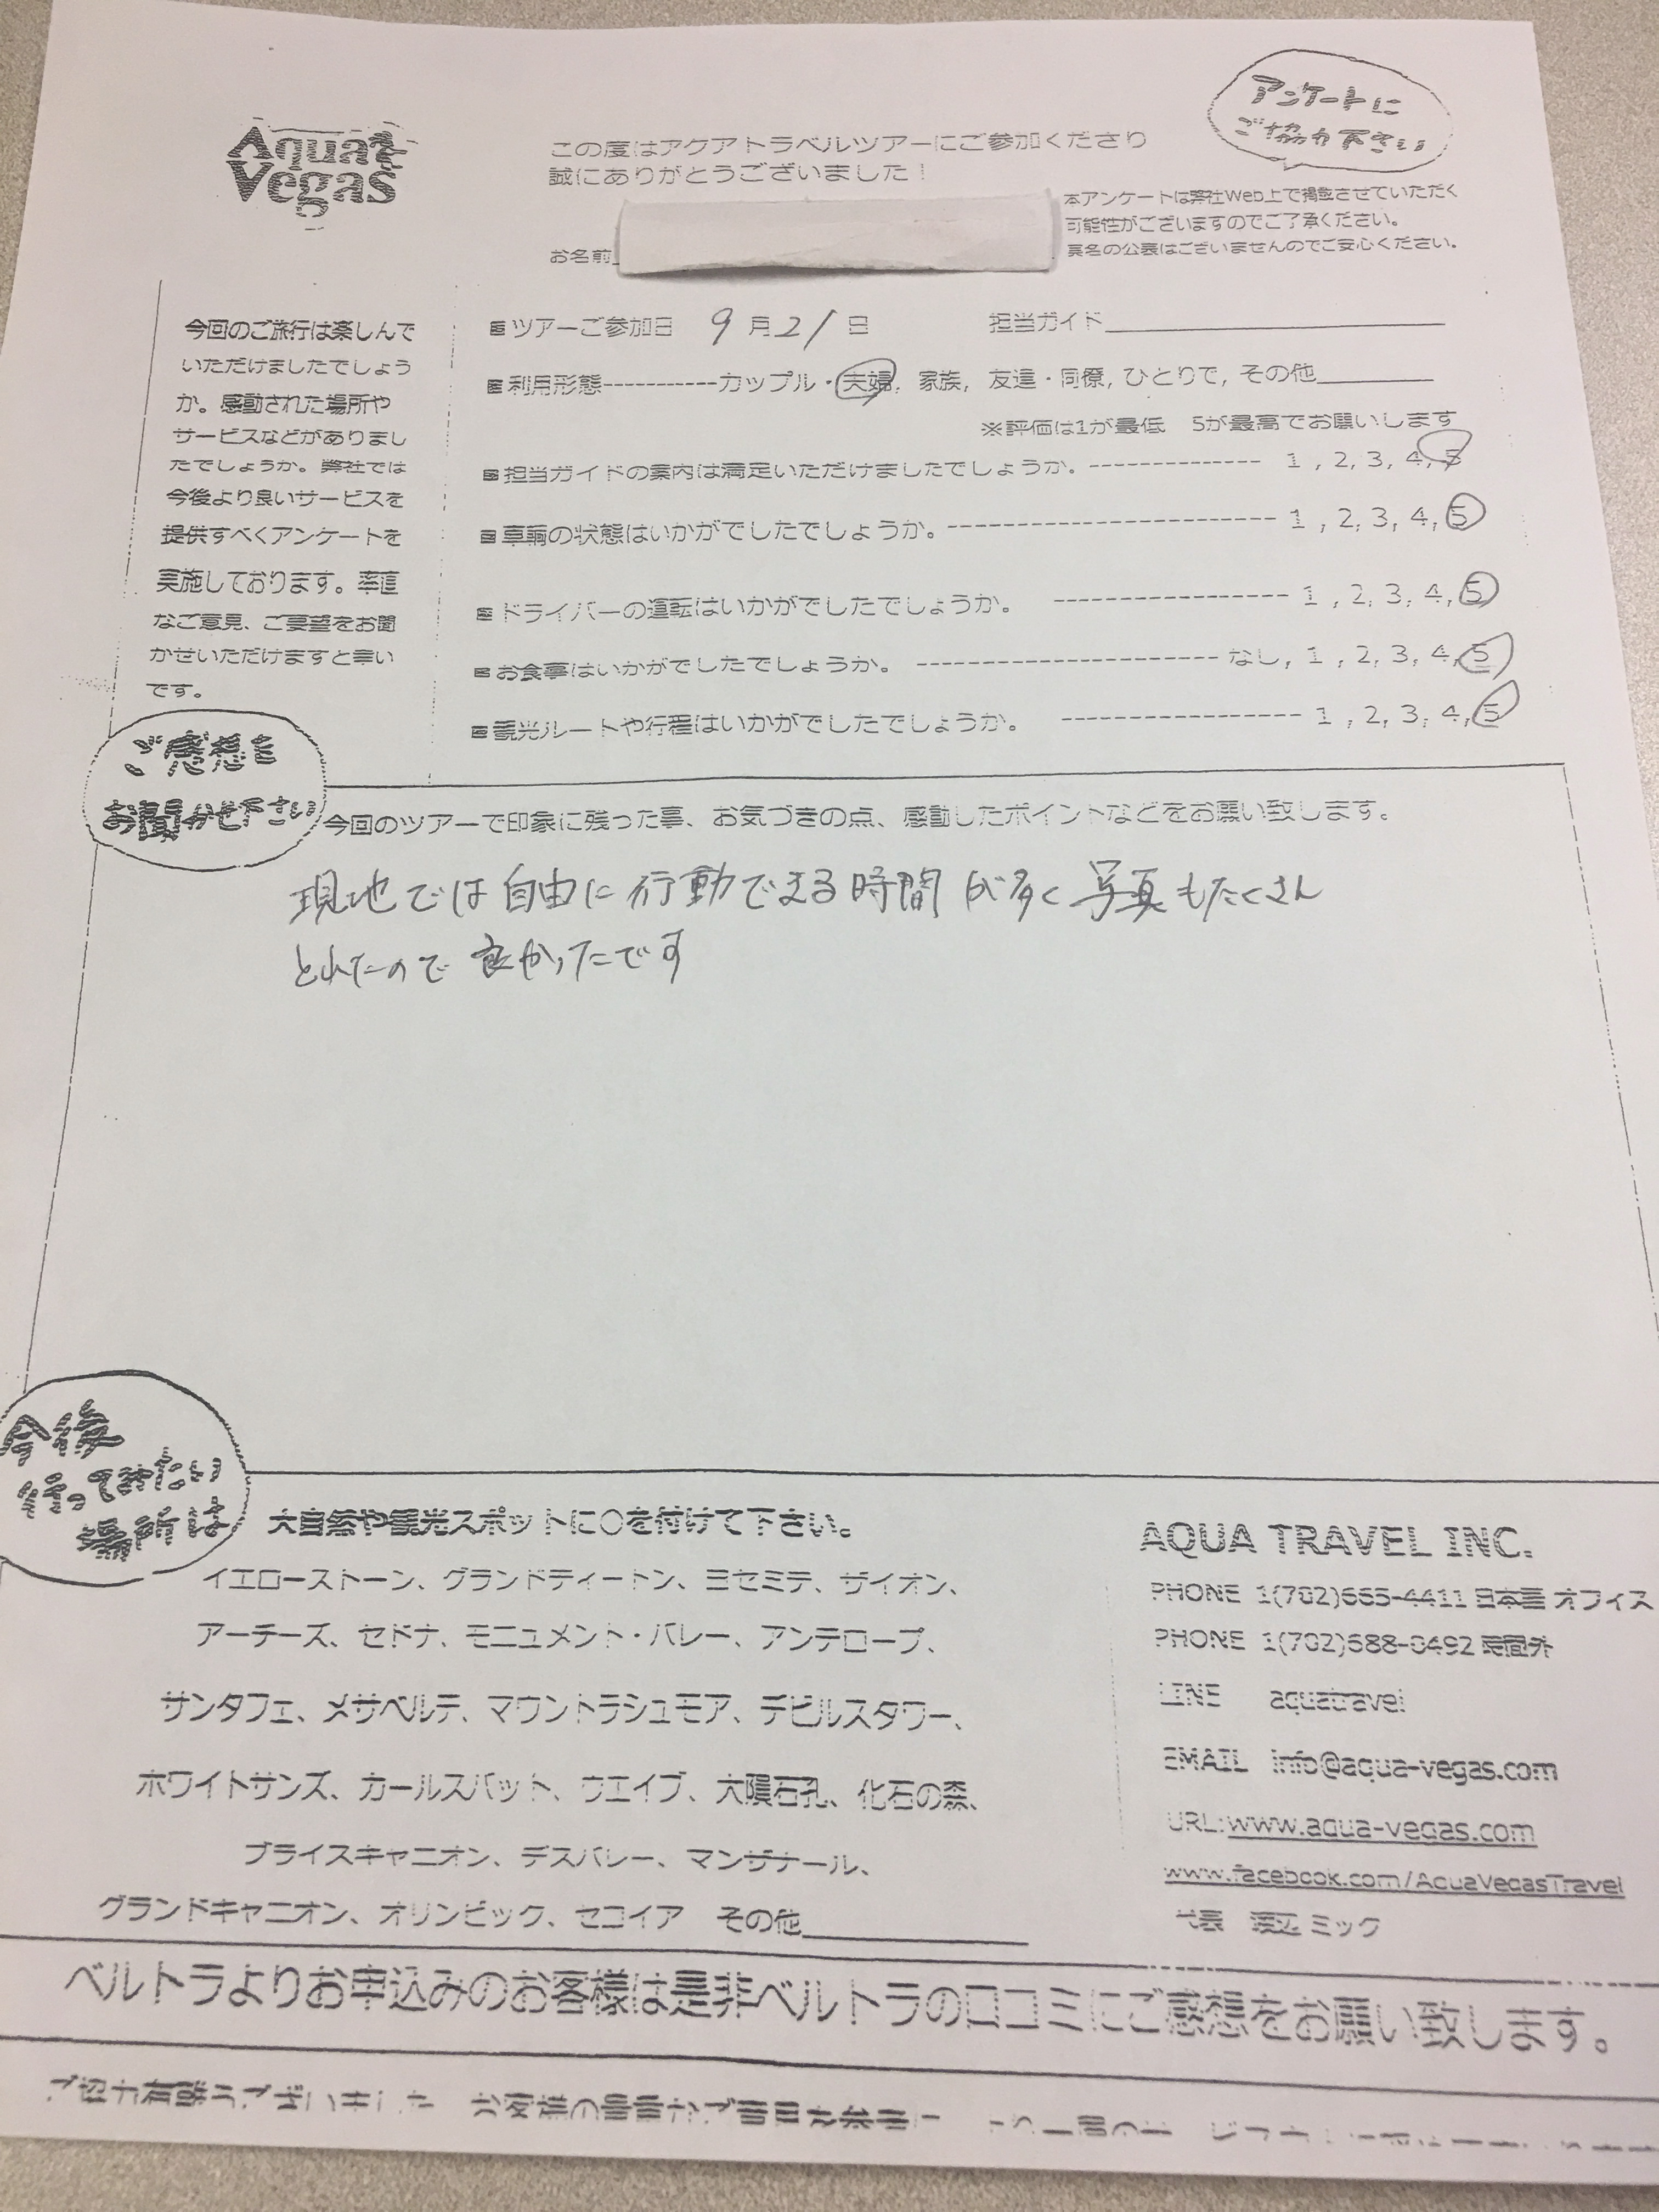 Aqua
Vegas
この度はアクアトラベルツアーにご参加くださり
誠にありがとうございました！
アンケートに
ご協力下さい
本アンケートは弊社Web上で掲載させていただく
可能性がございますのでご了承ください。
実名の公表はございませんのでご安心ください。
お名前
今回のご旅行は楽しんで
いただけましたでしょう
か。感動された場所や
サービスなどがありまし
たでしょうか。弊社では
今後より良いサービスを
提供すべくアンケートを
実施しております。率直
なご意見、ご要望をお聞
かせいただけますと幸い
です。
ツアーご参加日 9月21日 担当ガイド
利用形態-----------カップル・夫婦, 家族, 友達・同僚, ひとりで, その他
※評価は1が最低 5が最高でお願いします
担当ガイドの案内は満足いただけましたでしょうか。-------------- 1 , 2, 3, 4, 5
車輌の状態はいかがでしたでしょうか。--------------------------- 1 , 2, 3, 4, 5
ドライバーの運転はいかがでしたでしょうか。 ------------------- 1 , 2, 3, 4, 5
お食事はいかがでしたでしょうか。 ------------------------- なし, 1 , 2, 3, 4, 5
観光ルートや行程はいかがでしたでしょうか。 -------------------- 1 , 2, 3, 4, 5
ご感想を
お聞かせ下さい
今回のツアーで印象に残った事、お気づきの点、感動したポイントなどをお願い致します。
現地では自由に行動できる時間が多く写真もたくさん
とれたので良かったです
今後
行ってみたい
場所は
大自然や観光スポットに○を付けて下さい。
イエローストーン、グランドティートン、ヨセミテ、ザイオン、
アーチーズ、セドナ、モニュメント・バレー、アンテロープ、
サンタフェ、メサベルデ、マウントラシュモア、デビルスタワー、
ホワイトサンズ、カールスバット、ウエイブ、大隕石孔、化石の森、
ブライスキャニオン、デスバレー、マンザナール、
グランドキャニオン、オリンピック、セコイア その他
AQUA TRAVEL INC.
PHONE 1(702)665-4411 日本語オフィス
PHONE 1(702)688-0492 時間外
LINE aquatravel
EMAIL info@aqua-vegas.com
URL:www.aqua-vegas.com
www.facebook.com/AquaVegasTravel
代表 渡辺 ミック
ベルトラよりお申込みのお客様は是非ベルトラの口コミにご感想をお願い致します。
ご協力有難うございました お客様の貴重なご意見を参考に